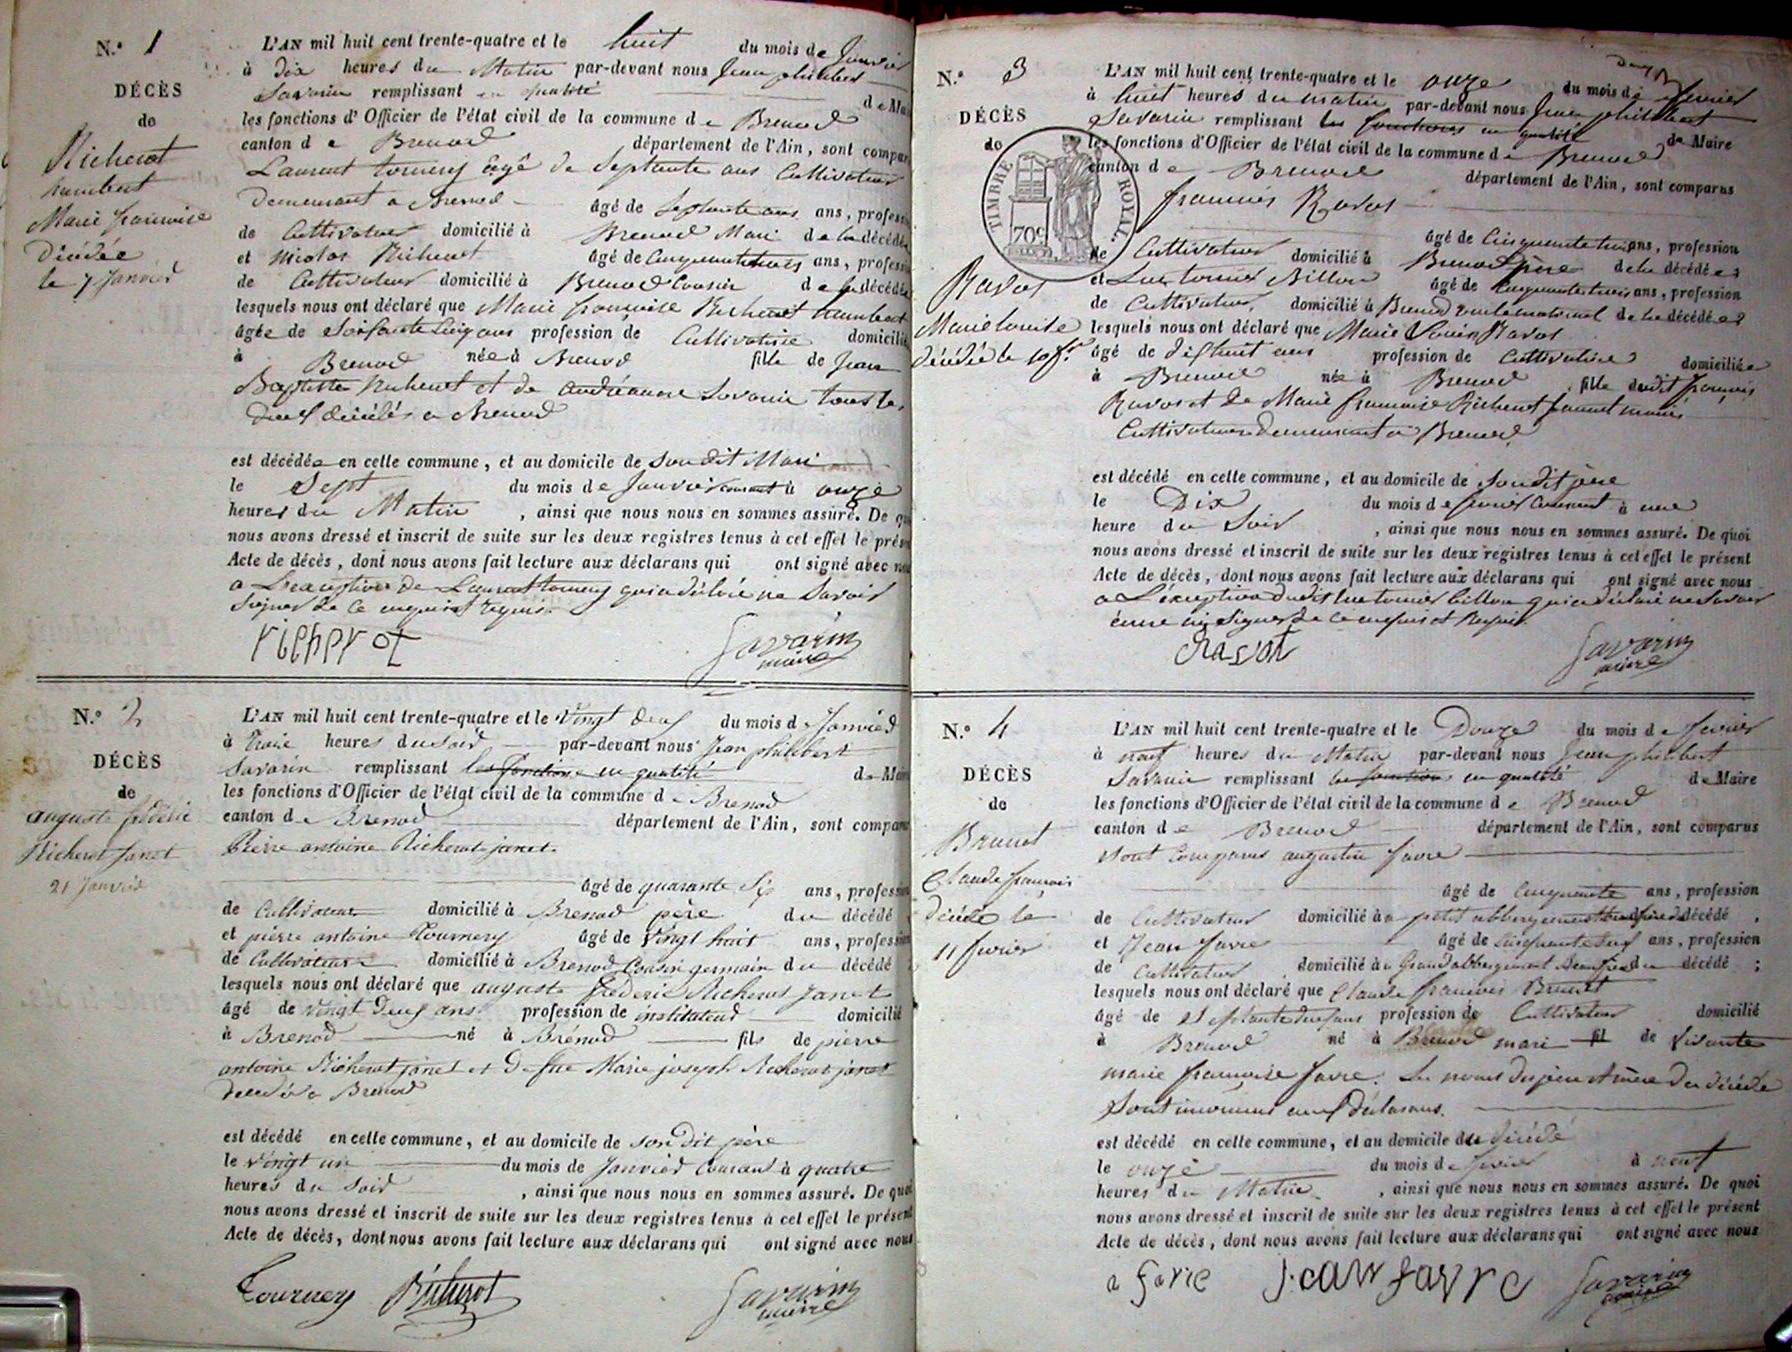 N.º 1
DÉCÈS
de
Richerot
humbert
Marie françoise
Décédée
le 7 Janvier
L'AN mil huit cent trente-quatre et le huit du mois de Janvier
à Dix heures du Matin par-devant nous Jean philibert
Savarin remplissant en qualité de Mai
les fonctions d'Officier de l'état civil de la commune de Brenod
canton de Brenod département de l'Ain, sont compar
Laurent tournery âgé de Septante ans Cultivateur
Demeurant a Brenod âgé de Septante ans ans, profess
de Cultivateur domicilié à Brenod Mari de la décédée
et Nicolas Richerot âgé de Cinquante ans, profess
de Cultivateur domicilié à Brenod Cousin de la décédée
lesquels nous ont déclaré que Marie françoise Richerot humbert
âgée de Soixante Cinq ans profession de Cultivatrice domicilié
à Brenod née à Brenod fille de Jean
Baptiste Richerot et de Savarin tous les
Deux décédés a Brenod
est décédée en cette commune, et au domicile de Son dit Mari
le Sept du mois de Janvier courant à onze
heures du Matin, ainsi que nous nous en sommes assuré. De qu
nous avons dressé et inscrit de suite sur les deux registres tenus à cet effet le prése
Acte de décès, dont nous avons fait lecture aux déclarans qui ont signé avec no
a L'exception de Laurent tournery qui a déclaré ne Savoir
Signer de ce enquis et requis.
richerot Savarin
maire
N.º 2
DÉCÈS
de
auguste frédéric
Richerot Janet
21 Janvier
L'AN mil huit cent trente-quatre et le Vingt deux du mois de Janvier
à Trois heures du Soir par-devant nous Jean philibert
Savarin remplissant les fonctions en qualité de Mai
les fonctions d'Officier de l'état civil de la commune de Brenod
canton de Brenod département de l'Ain, sont compar
Pierre antoine Richerot janet.
âgé de quarante Six ans, profess
de Cultivateur domicilié à Brenod père du décédé
et pierre antoine Tournery âgé de Vingt huit ans, profess
de Cultivateur domicilié à Brenod Cousin germain du décédé
lesquels nous ont déclaré que auguste frédéric Richerot Janet
âgé de Vingt Deux ans profession de instituteur domicilié
à Brenod né à Brénod fils de pierre
antoine Richerot janet et De fue Marie joseph Richerot janet
décédé a Brenod
est décédé en cette commune, et au domicile de son dit père
le Vingt un du mois de Janvier Courant à quatre
heures du Soir, ainsi que nous nous en sommes assuré. De quoi
nous avons dressé et inscrit de suite sur les deux registres tenus à cet effet le présent
Acte de décès, dont nous avons fait lecture aux déclarans qui ont signé avec nous
Tournery Richerot Savarin
maire
N.º 3
DÉCÈS
de
TIMBRE ROYAL.
70c
Ravot
Marie louise
décédée le 10 fr
L'AN mil huit cent trente-quatre et le onze du mois de fevrier
à huit heures du matin par-devant nous Jean philibert
Savarin remplissant les fonctions en qualité de Maire
les fonctions d'Officier de l'état civil de la commune de Brenod
canton de Brenod département de l'Ain, sont comparus
françois Ravot
âgé de Cinquante trois ans, profession
de Cultivateur domicilié à Brenod père de la décédée
et Luc tournier Billon âgé de Cinquante trois ans, profession
de Cultivateur, domicilié à Brenod oncle maternel de la décédée
lesquels nous ont déclaré que Marie Louise Ravot
âgé de dixhuit ans profession de Cultivatrice domiciliée
à Brenod née à Brenod, fille dudit françois
Ravot et de Marie françoise Richerot mariés
Cultivateurs demeurant à Brenod
est décédé en cette commune, et au domicile de Son dit père
le Dix du mois de fevrier Courant à une
heure du Soir, ainsi que nous nous en sommes assuré. De quoi
nous avons dressé et inscrit de suite sur les deux registres tenus à cet effet le présent
Acte de décès, dont nous avons fait lecture aux déclarans qui ont signé avec nous
a L'exception dudit Luc tournier billon qui a déclaré ne Savoir
écrire ni Signer de ce enquis et Requis
Ravot Savarin
maire
N.º 4
DÉCÈS
de
Brunet
Claude françois
décédé le
11 fevrier
L'AN mil huit cent trente-quatre et le Douze du mois de fevrier
à neuf heures du Matin par-devant nous Jean philibert
Savarin remplissant les fonctions en qualité de Maire
les fonctions d'Officier de l'état civil de la commune de Brenod
canton de Brenod département de l'Ain, sont comparus
Sont Comparus augustin favre
âgé de Cinquante ans, profession
de Cultivateur domicilié à petit abbergement beaufrère du décédé,
et Jean favre âgé de Cinquante Sept ans, profession
de Cultivateur, domicilié à Grand abbergement Beaufrère du décédé;
lesquels nous ont déclaré que Claude francois Brunet
âgé de Septante deux ans profession de Cultivateur domicilié
à Brenod né à Brenod mari fil de Vivante
marie françoise favre. Les noms du père et mère du décédé
Sont inconnus aux déclarans.
est décédé en cette commune, et au domicile du décédé
le onze du mois de fevrier à neuf
heures du Matin, ainsi que nous nous en sommes assuré. De quoi
nous avons dressé et inscrit de suite sur les deux registres tenus à cet effet le présent
Acte de décès, dont nous avons fait lecture aux déclarans qui ont signé avec nous
a favre Jean favre Savarin
maire